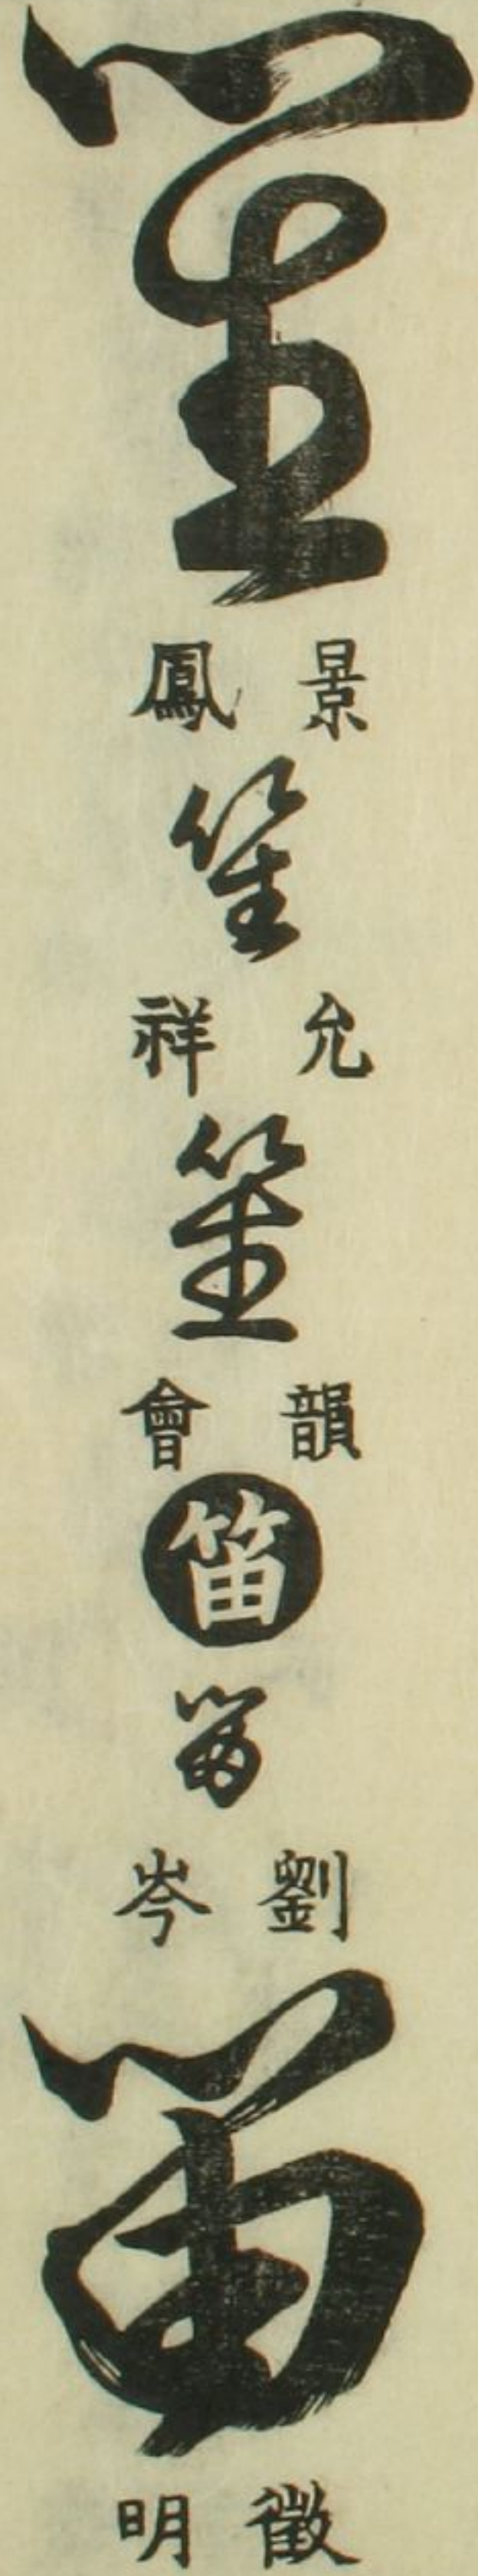 笙
景鳳
笙
允祥
笙
韻會
笛
笛
劉岑
笛
徵明